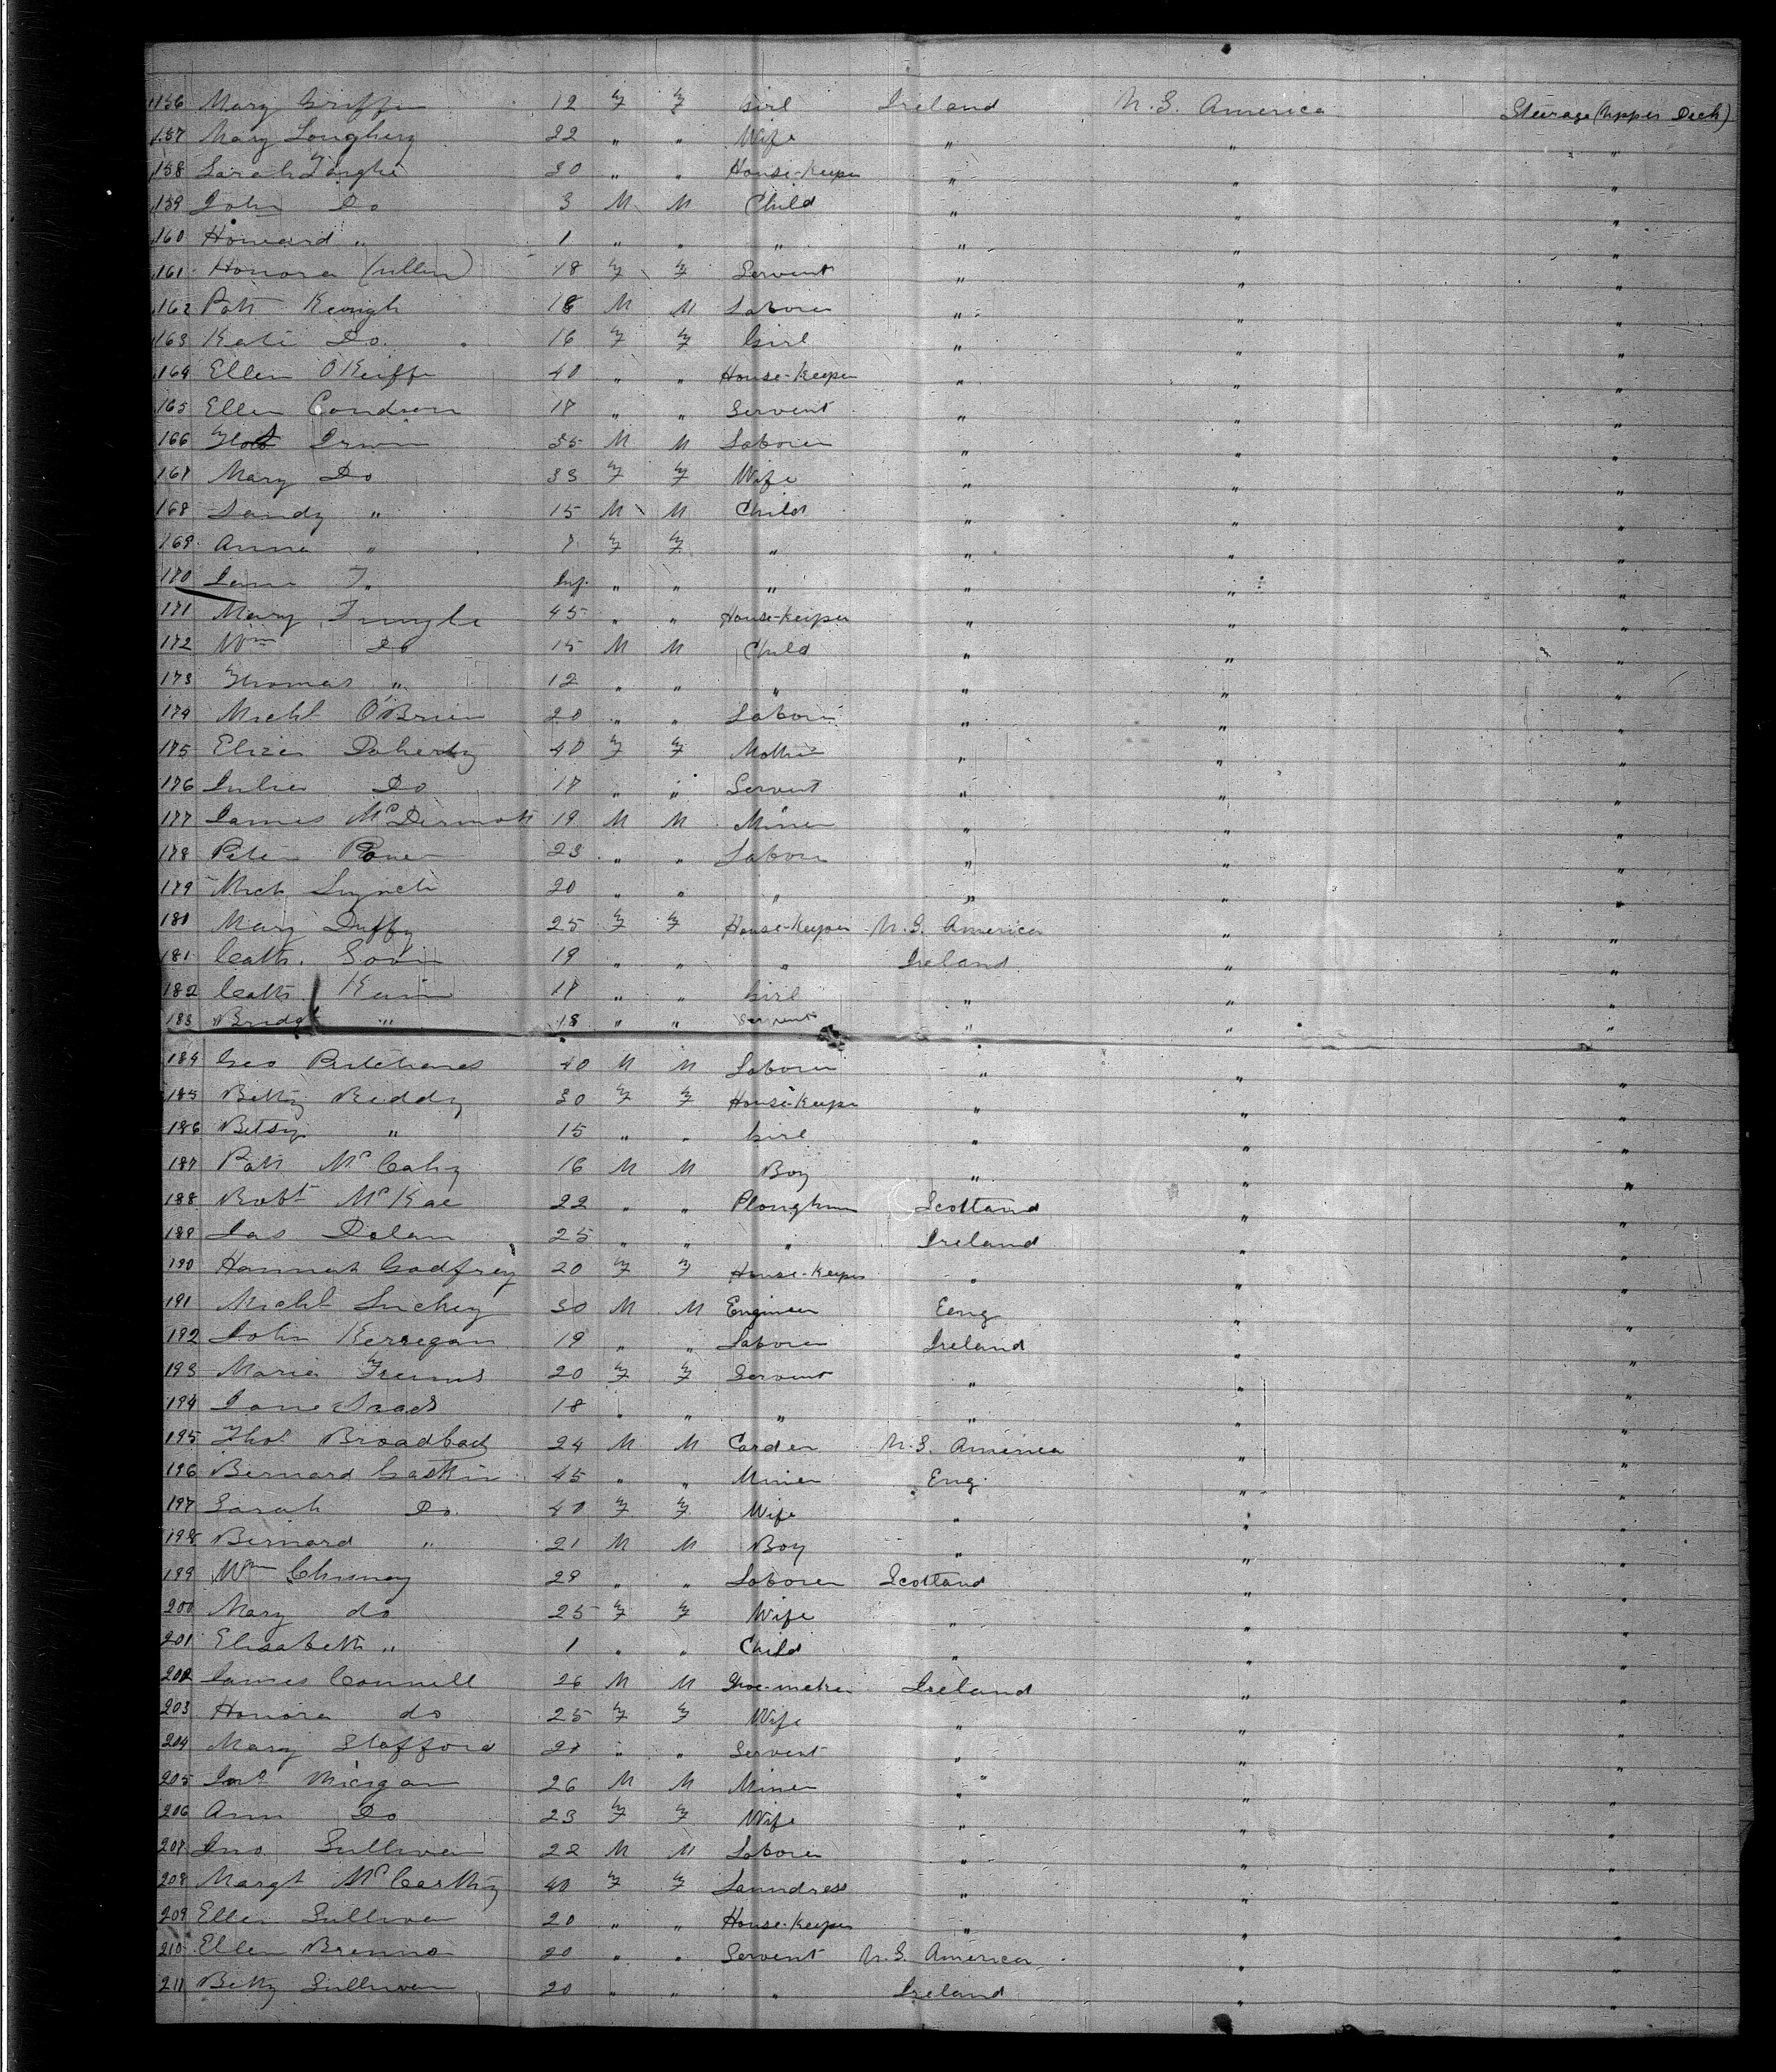 156 Mary Griffin 12 F F Girl Ireland U.S. America Steerage (Upper Deck)
157 Mary Loughery 22 " " Wife " " "
158 Sarah 30 " " House-Keeper " " "
159 John Do 3 M M Child " " "
160 Howard " 1 " " " " " "
161 Honora Cullen 18 F F Servent " " "
162 Patk Keough 18 M M Laborer " " "
163 Kate Do. 16 F F Girl " " "
164 Ellen O'Keiffe 40 " " House-Keeper " " "
165 Ellen Condron 17 " " Servent " " "
166 Thos Irwin 35 M M Laborer " " "
167 Mary Do 33 F F Wife " " "
168 Sandy " 15 M M Child " " "
169 Anna " 7 F F " " " "
170 Jane " Inf. " " " " " "
171 Mary 45 " " House-Keeper " " "
172 Wm Do 15 M M Child " " "
173 Thomas " 12 " " " " " "
174 Michl O'Brien 20 " " Laborer " " "
175 Eliza Doherty 40 F F Mother " " "
176 Julia Do 17 " " Servent " " "
177 James McDermott 19 M M Miner " " "
178 Peter Power 23 " " Laborer " " "
179 Mich Lynch 20 " " " " " "
180 Mary Duffy 25 F F House-Keeper U.S. America " "
181 Cath. 19 " " " Ireland " "
182 Cath. Kain 17 " " Girl " " "
183 Bridgt " 18 " " Servent " " "
184 Geo 40 M M Laborer " " "
185 Betty Reddy 30 F F House-Keeper " " "
186 Betsy " 15 " " Girl " " "
187 Patk McCahy 16 M M Boy " " "
188 Robt McKae 22 " " Ploughman Scotland " "
189 Jas Dolan 25 " " " Ireland " "
190 Hannah Godfrey 20 F F House-Keeper " " "
191 Michl Luckey 30 M M Engineer Eng " "
192 John Kerregan 19 " " Laborer Ireland " "
193 Maria 20 F F Servent " " "
194 Jane 18 " " " " " "
195 Thos Broadbact 24 M M Carder U.S. America " "
196 Bernard Gaskin 45 " " Miner Eng. " "
197 Sarah Do. 40 F F Wife " " "
198 Bernard " 21 M M Boy " " "
199 Wm 29 " " Laborer Scotland " "
200 Mary do 25 F F Wife " " "
201 Elisabeth " 1 " " Child " " "
202 James Connell 26 M M Shoe-maker Ireland " "
203 Honora do 25 F F Wife " " "
204 Mary Stafford 20 " " Servent " " "
205 26 M M Miner " " "
206 Ann Do 23 F F Wife " " "
207 Jno. Sullivan 22 M M Laborer " " "
208 Margt McCarthy 40 F F Laundress " " "
209 Ellen Sullivan 20 " " House-Keeper " " "
210 Ellen Brenno 20 " " Servent U.S. America " "
211 Betty Sullivan 20 " " " Ireland " "